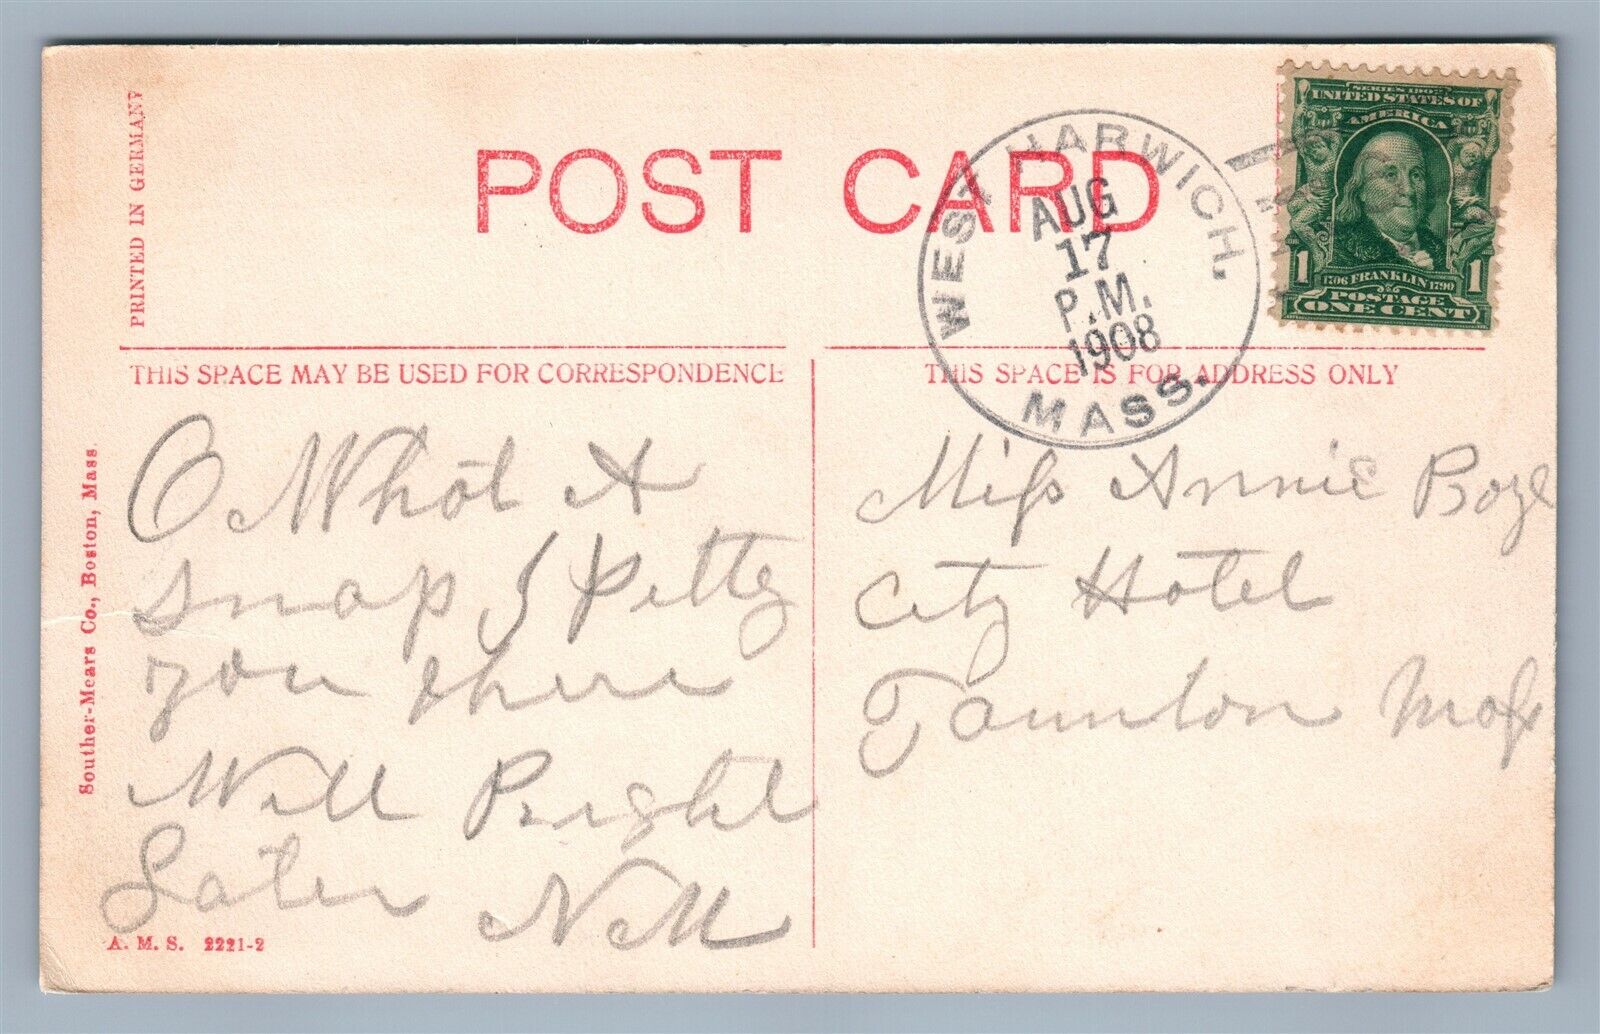 PRINTED IN GERMANY
POST CARD
WEST HARWICH,
AUG
17
P.M.
1908
MASS.
SERIES 1902
UNITED STATES OF
AMERICA
1706 FRANKLIN 1790
1 POSTAGE 1
ONE CENT
THIS SPACE MAY BE USED FOR CORRESPONDENCE
THIS SPACE IS FOR ADDRESS ONLY
O What A
snap I Pitty
you there
Will Right
Later N M
Miss Annie Boyl
City Hotel
Taunton Mass
Souther-Mears Co., Boston, Mass.
A. M. S. 2221-2